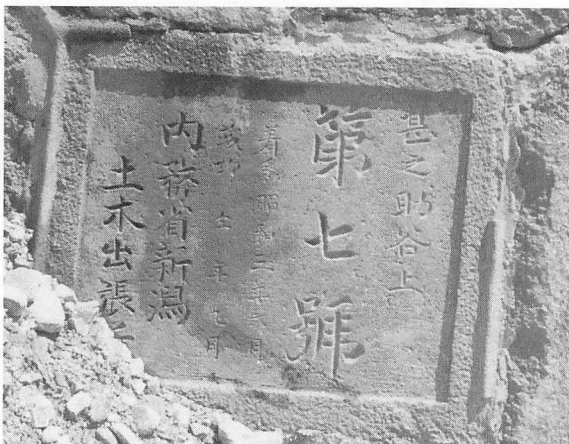 甚之助谷上
第七號
着手昭和二年月
竣功仝年月
内務省新潟
土木出張